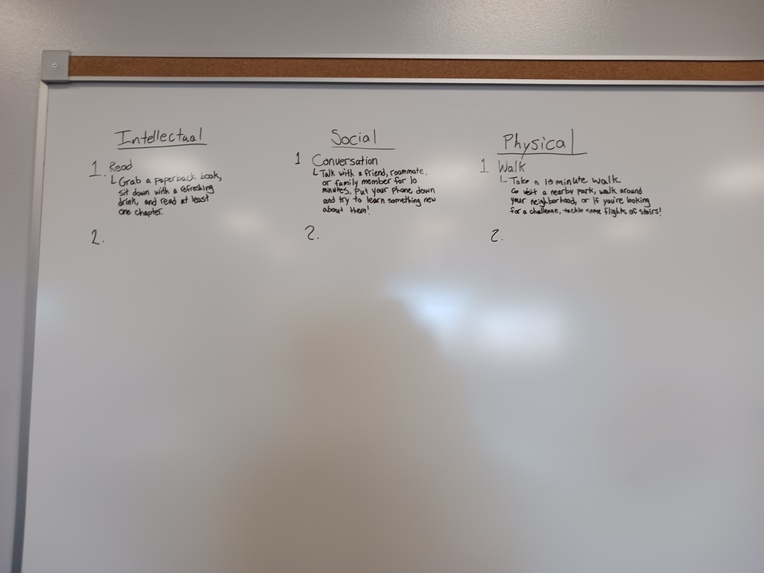 Intellectual
1. Read
Grab a paperback book,
sit down with a refreshing
drink, and read at least
one chapter.
2.
Social
1 Conversation
Talk with a friend, roommate,
or family member for 10
minutes. Put your phone down
and try to learn something new
about them!
2.
Physical
1 Walk
Take a minute walk.
Go visit a nearby park, walk around
your neighborhood, or if you're looking
for a challenge, tackle some flights of stairs!
2.